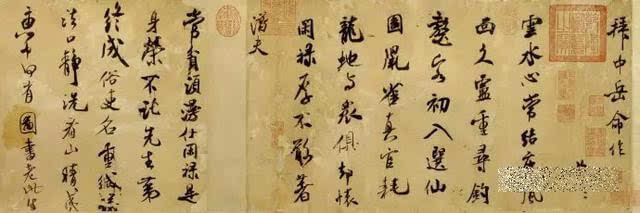 拜中岳命作
芾
雲水心常結風塵
面久盧重尋釣
鼇客初入選仙
圖鼠雀真官耗
龍蛇與眾俱却懷
閑祿厚不敢著
潛夫
常貧須漫仕閑祿是
身榮不託先生第
終成俗吏名重緘議
法口靜洗看山睛夷
惠中何有圖書老此生